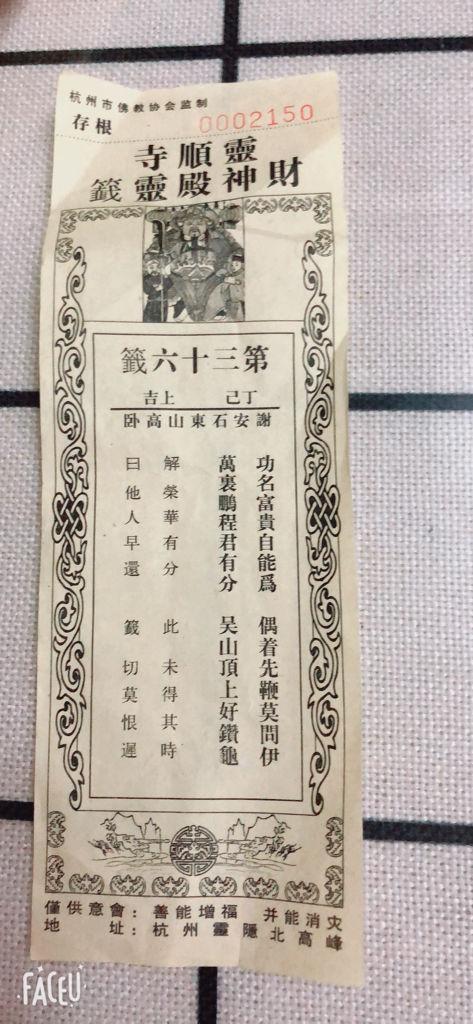 杭州市佛教协会监制
存根 0002150
靈順寺
財神殿靈籤
第三十六籤
丁己 上吉
謝安石東山高卧
功名富貴自能爲 偶着先鞭莫問伊
萬裏鵬程君有分 吴山頂上好鑽龜
解榮華有分 此未得其時
曰他人早還 籤切莫恨遲
僅供意會：善能增福 并能消灾
地址：杭州靈隱北高峰
FACEU